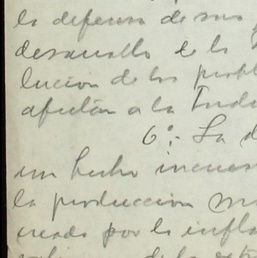 la defensa de sus
desarrollo e la
lucion de los probl
afectan a la Indu
6º.- La d
un hecho incues
la produccion
creada por la infla
de la